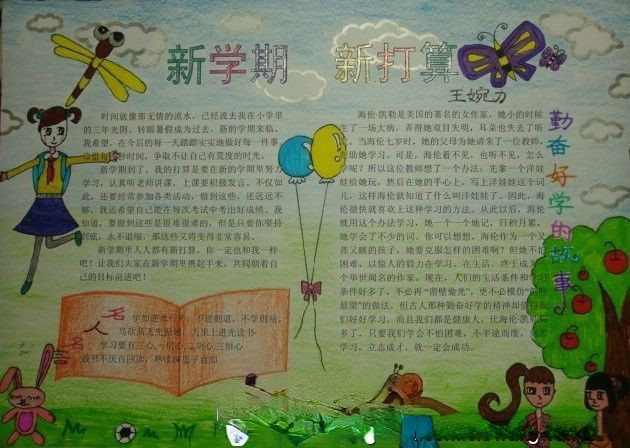 新学期 新打算
王婉力
时间就像那无情的流水,已经流去我在小学里
的三年光阴,转眼暑假成为过去,新的学期来临。
我希望,在今后的每一天踏踏实实地做好每一件事
时间,争取不让自己有荒度的时光。
新学期到了,我的打算是要在新的学期里努力
学习,认真听老师讲课,上课要积极发言,不仅如
此,还要经常参加各类活动,做到这些,还远远不
够,我还希望自己能在每次考试中考出好成绩。我
知道,要做到这些是很难很难的,但是只要你坚持
到底,永不退缩,那这些又将变得非常容易。
新学期里人人都有新打算,你一定也和我一样
吧!让我们大家在新学期里携起手来,共同朝着自
己的目标前进吧!
名人名
学如逆水行舟,不进则退,不学则殆。
鸟欲高飞先振翅,人求上进先读书
学习要有三心,一信心,二决心,三恒心
故书不厌百回读,熟读深思子自知
海伦·凯勒是美国的著名的女作家。她小的时候
生了一场大病,弄得她双目失明,耳朵也失去了听
。当海伦七岁时,她的父母为她请来了一位教师,
帮助她学习。可是,海伦看不见,也听不见,怎么
学呢?所以这位教师想了一个办法:先拿一个洋娃
娃给她玩,然后在她的手心上,写上洋娃娃这个词
儿,这样海伦就知道了什么叫洋娃娃了。因此,海
伦很快就喜欢上这种学习的方法。从此以后,海伦
就用这个办法学习,她一个一个地记,日积月累,
她学会了不少的词。你可以想想,海伦作为一个又
聋又瞎的孩子,她要克服怎样的困难啊?但她不怕
困难,以惊人的毅力在学习,在生活,终于成为了
个举世闻名的作家。现在,人们的生活条件和学习
条件好多了,不必再“凿壁偷光”,更不必模仿“
悬梁”的做法,但古人那种勤奋好学的精神却值得我
们好好学习,而且我们都是健康人,比海伦·凯勒
多了,只要我们学会不怕困难,不半途而废,
学习,立志成才,就一定会成功。
勤奋好学的故事